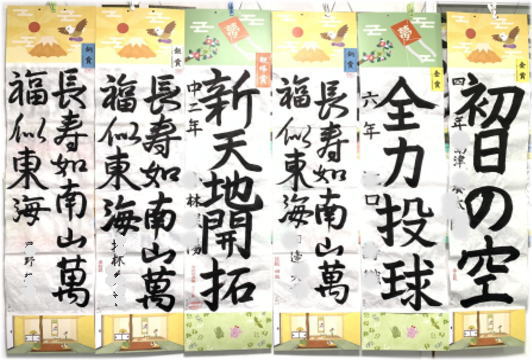 金賞
初日の空
四年
津
夢
金賞
全力投球
六年
口
長寿如南山萬
福似東海
夢
新天地開拓
中二年
林
長寿如南山萬
福似東海
林
長寿如南山萬
福似東海
野